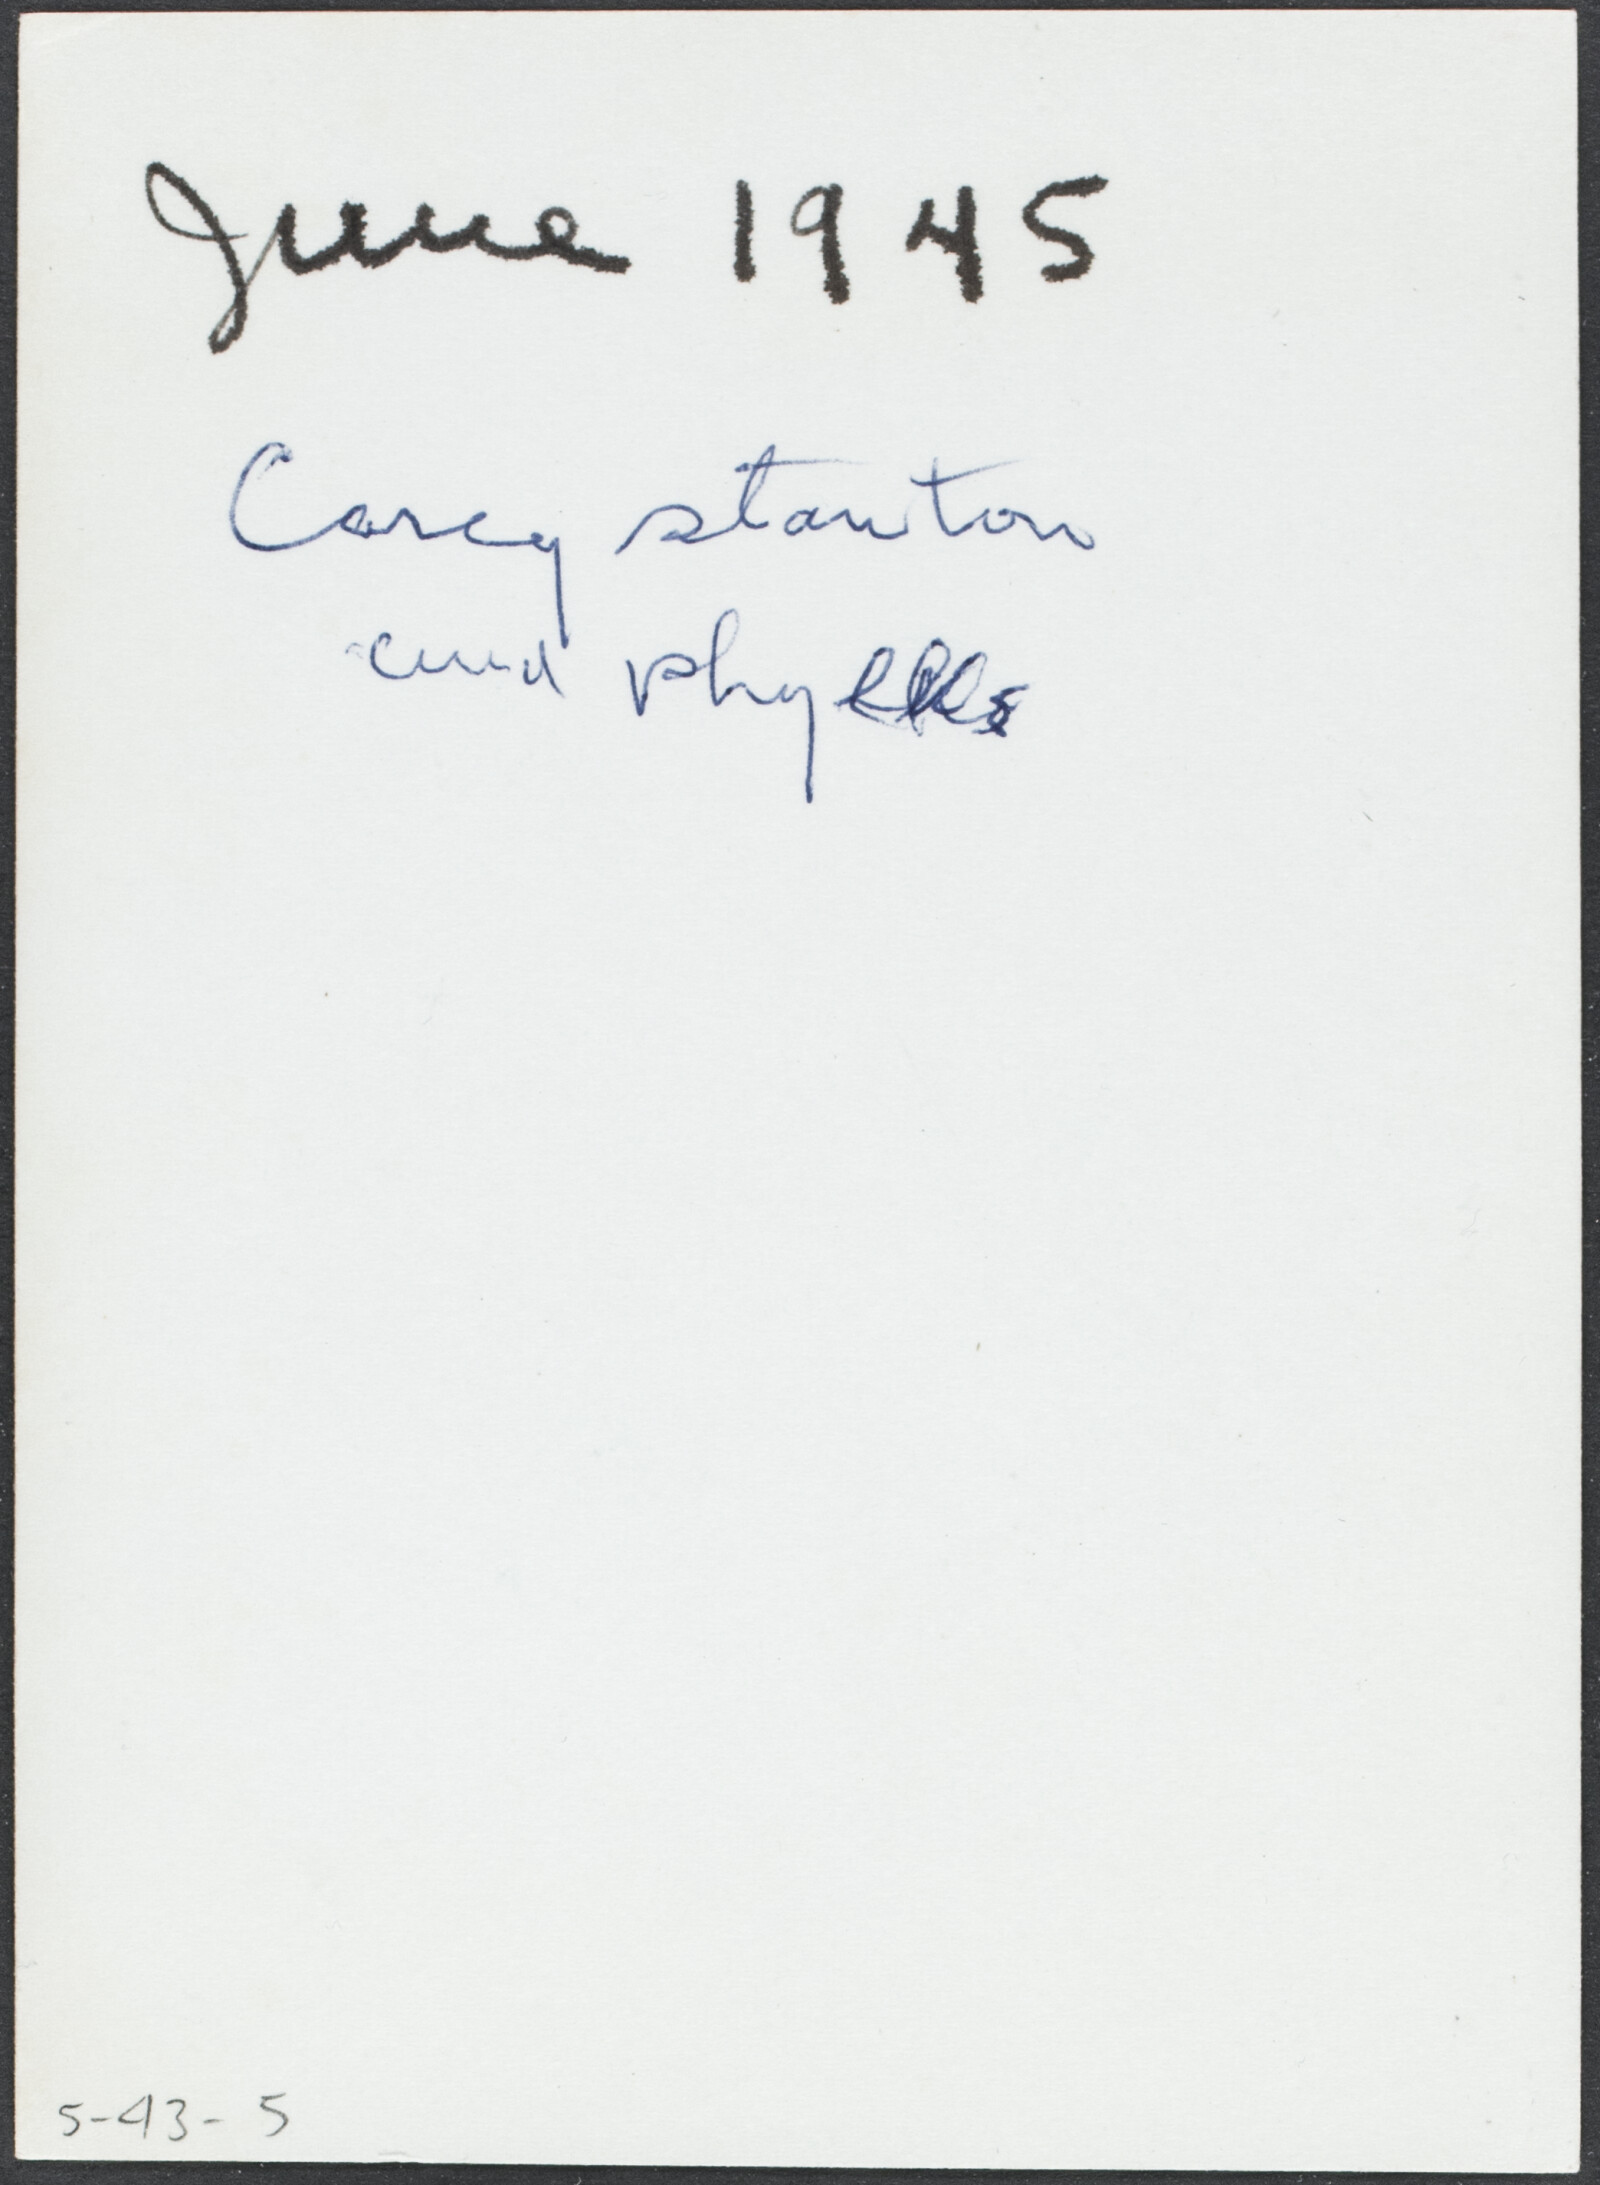 June 1945
Carey Stanton
and Phyllis
5-43-5